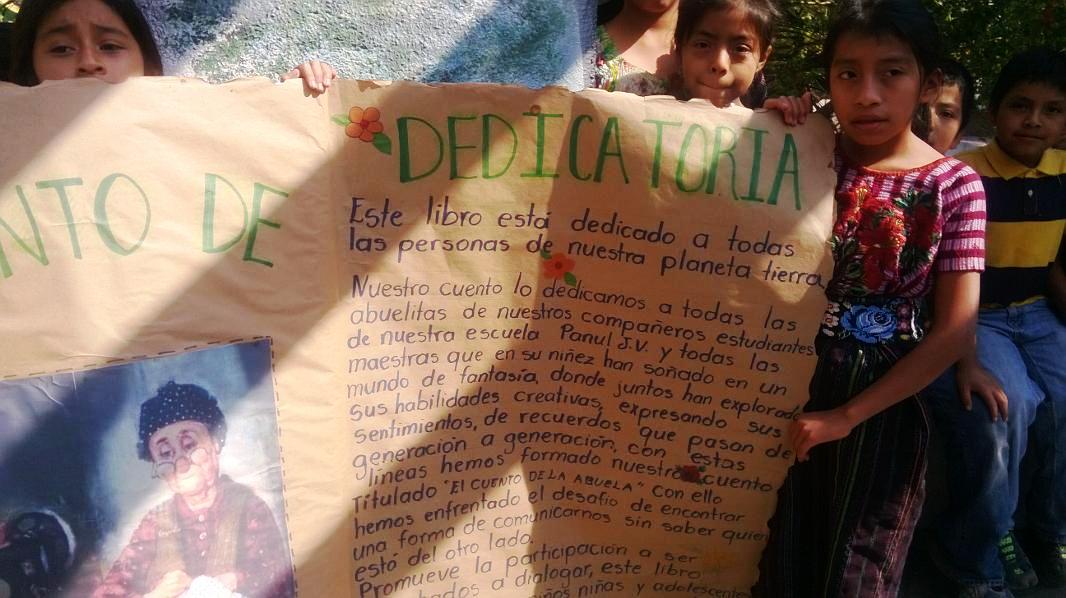 NTO DE
DEDICATORIA
Este libro está dedicado a todas
las personas de nuestra planeta tierra.
Nuestro cuento lo dedicamos a todas las
abuelitas de nuestros compañeros estudiantes
de nuestra escuela Panul J.V. y todas las
maestras que en su niñez han soñado en un
mundo de fantasía, donde juntos han explorado
sus habilidades creativas, expresando sus
sentimientos, de recuerdos que pasan de
generación a generación, con estas
líneas hemos formado nuestro cuento
Titulado "EL CUENTO DE LA ABUELA" con ello
hemos enfrentado el desafío de encontrar
una forma de comunicarnos sin saber quien
está del otro lado.
Promueve la participación a ser
a dialogar, este libro
niñas y adolescente